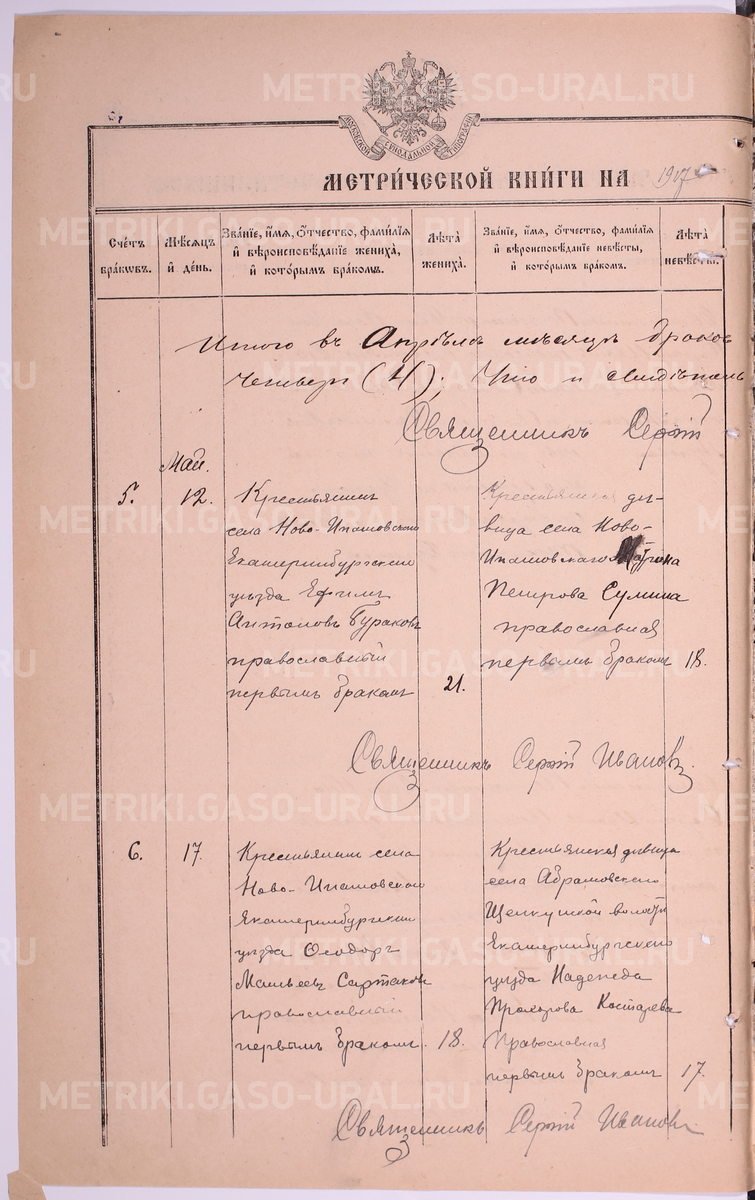 МЕТРИ́ЧЕСКОЙ КНИ́ГИ НА 1917
МОСКОВСКОЙ СѴНОДАЛЬНОЙ ТИПОГРАФІИ
Сче́тъ бра́кωвъ.
Мѣ́сяцъ и҆ де́нь.
Зва́нїе, и҆́мѧ, ѻ҆́тчество, фами́лїѧ и҆ вѣроисповѣ́данїе жениха̀, и҆ кото́рымъ бра́комъ.
Лѣ̑та жениха̀.
Зва́нїе, и҆́мѧ, ѻ҆́тчество, фами́лїѧ и҆ вѣроисповѣ́данїе невѣ́сты, и҆ кото́рымъ бра́комъ.
Лѣ̑та невѣ́сты.
Итого въ Апрѣлѣ мѣсяцѣ браков
Четыре (4);
Священникъ Сергій
Май.
5. 12.
Крестьянинъ
села Ново-Ипатовскаго
Екатеринбургскаго
уѣзда Ефимъ
Антоновъ Бураковъ
православный
первымъ бракомъ
21.
Крестьянская дѣ-
вица села Ново-
Ипатовскаго
Петрова Сумина
православная
первымъ бракомъ 18.
Священникъ Сергій Ивановъ
6. 17.
Крестьянинъ села
Ново-Ипатовскаго
Екатеринбургскаго
уѣзда Ѳеодоръ
Матвеевъ Сартаковъ
православный
первымъ бракомъ. 18.
Крестьянская дѣвица
села Абрамовскаго
Щелкунской волости
Екатеринбургскаго
уѣзда Надежда
Прохорова Костарева
Православная
первымъ бракомъ 17.
Священникъ Сергій Ивановъ
METRIKI.GASO-URAL.RU